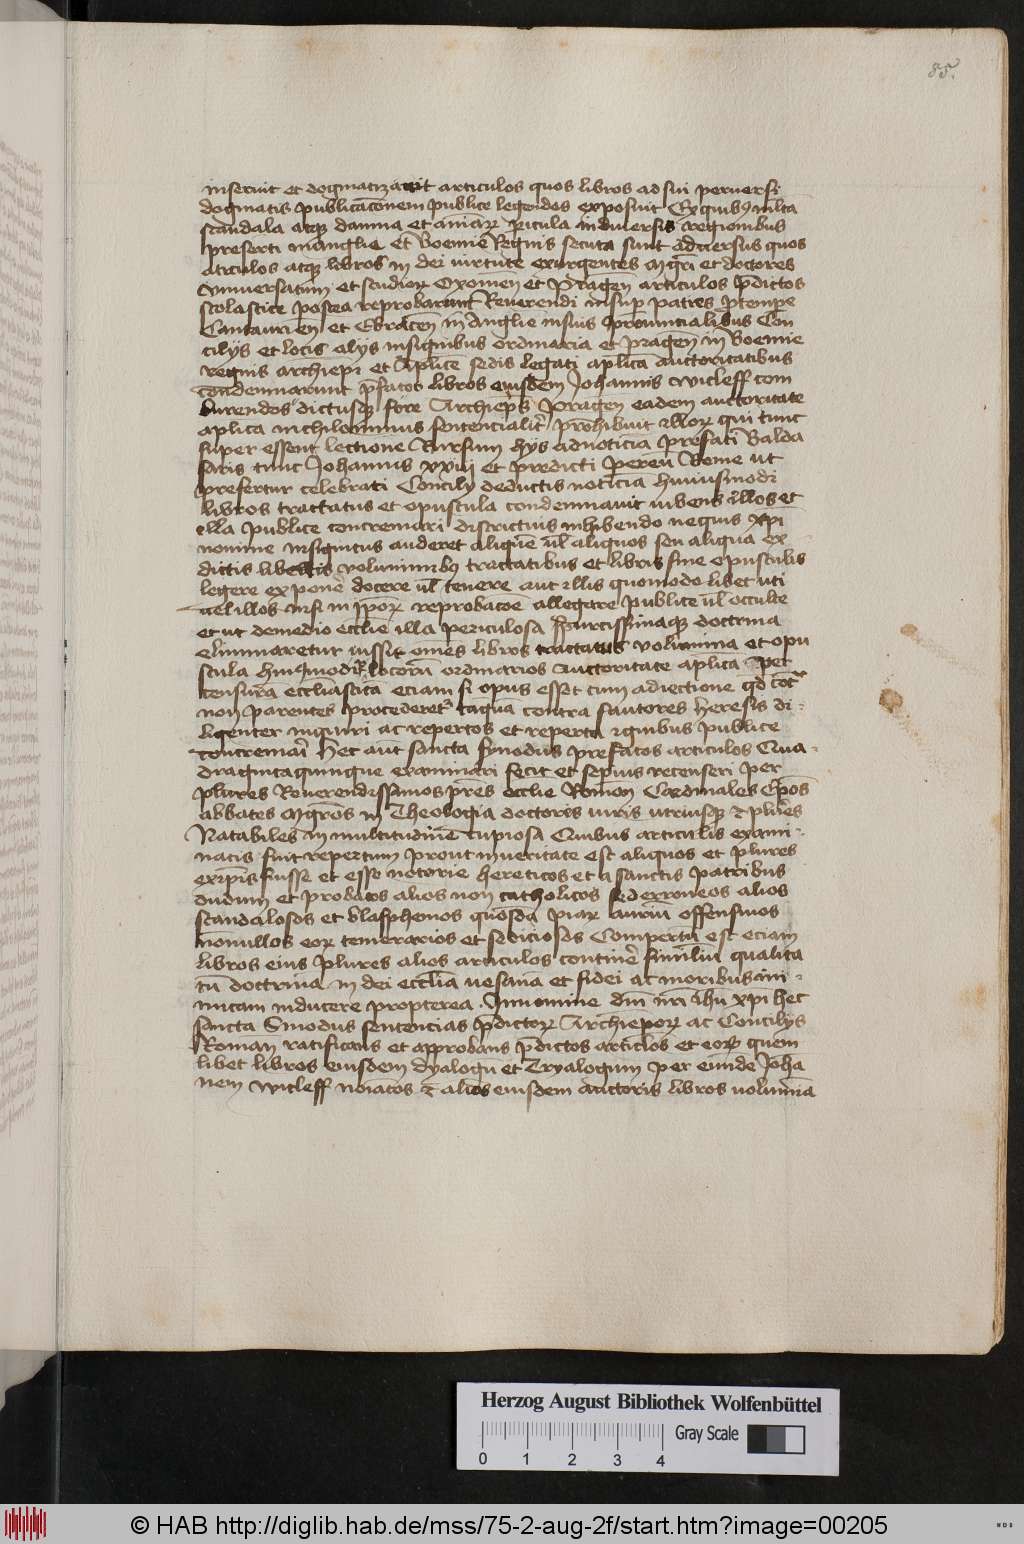 85.
inseruit et dogmatizauit articulos quos libros ad sui peruersi
dogmatis publicac̄onem publice legendos exposuit Ex quibꝯ mlta
scandala atqꝫ damna et aīaꝝ pericula in diuersis regionibus
presertī in anglie et Boemie Regnis secuta sunt aduersus quos
atīculos atqꝫ libros in dei uirtute exurgentes mgrī et doctores
vniuersatum et studioꝝ Oxonien̄ et Pragen̄ articulos p̄dictos
scolastice postea reprobarunt Reuerendi insup̄ patres p̄ tempe
Cantuarien̄ et Eboracen̄ in Anglie in suis prouincialibus Con
cilijs et locis alijs insignibus ordinaria et pragen̄ in Boemie
regnis archiepī et aplīce sedis legati aplīca auctoritatibus
condemnarunt p̄fatos libros eiusdem Johannis wicleff com
burendos dictusqꝫ fore Archiep̄s Pragen̄ eadem auctoritate
aplīca nichilominus sentencialit̄ prohibuit illoꝝ qui tunc
super essent lectione Rursum hijs ad noticia prefati Balda
saris tunc Johannis xxiij et predicti per eū Rome ut
prefertur celebrati Concilij deductis noticia huiusmodi
libros tractatus et opuscula condemnauit iubens illos et
illa publice concremari districtius inhibendo nequis xp̄i
nomine insignitus auderet aliquē ul̄ aliquos seu aliqua ex
dictis libellis voluminibꝯ tractatibus et libris siue opusculis
legere exponē docere ul̄ tenere aut illis quomodo libet uti
uel illos nisi in ip̄oꝝ reprobac̄oe allegare publice ul̄ occulte
et ut de medio ecclīe illa periculosa spurcissimaqꝫ doctrina
eliminaretur iussit om̄es libros tractatus volumina et opu
scula huiꝯmodi locorū ordinarios auctoritate aplīca per
censurā eccliasticā eciam si opus esset cum adiectione qd̄
non parentes procederet tāquā contra fautores heresis di-
ligenter inquiri ac repertos et reperta igibus publice
concremarī Hec aut sancta synodus prefatos articulos Qua-
draginta quinque examinari fecit et sepius recenseri per
plures Reuerendissimos p̄res ecclīe Romen̄ Cardinales Ep̄os
abbates mgrōs in Theologia doctores iuris utriusqꝫ et plures
Notabiles in multitudine cupiosa Quibus articulis exami-
natis fuit repertum prout in ueritate est aliquos et plures
ex ip̄is fuisse et esse notorie hereticos et a sanctis patribus
dudum et probatos alios non catholicos sed erroneos alios
scandalosos et blasphemos quosdā piaꝝ auriū offensiuos
nōnullos eoꝝ temerarios et sediciosos Compertū est eciam
libros eius plures alios articulos continē similiū qualita
tū doctrina in dei eccliā uesanā et fidei ac moribus ini-
micam inducere propterea In nomine dn̄i nr̄i ihū xp̄i hec
sancta Sinodus sentencias p̄dictoꝝ Archiepoꝝ ac Concilijs
Roman ratificans et approbans p̄dictos articlos et eoꝝ quem
libet libros eiusdem dyalogū et Tryalogum per eunde Joha
nem wicleff noīatos et alios eiusdem auctoris libros uolumina
Herzog August Bibliothek Wolfenbüttel
Gray Scale
0 1 2 3 4
© HAB http://diglib.hab.de/mss/75-2-aug-2f/start.htm?image=00205